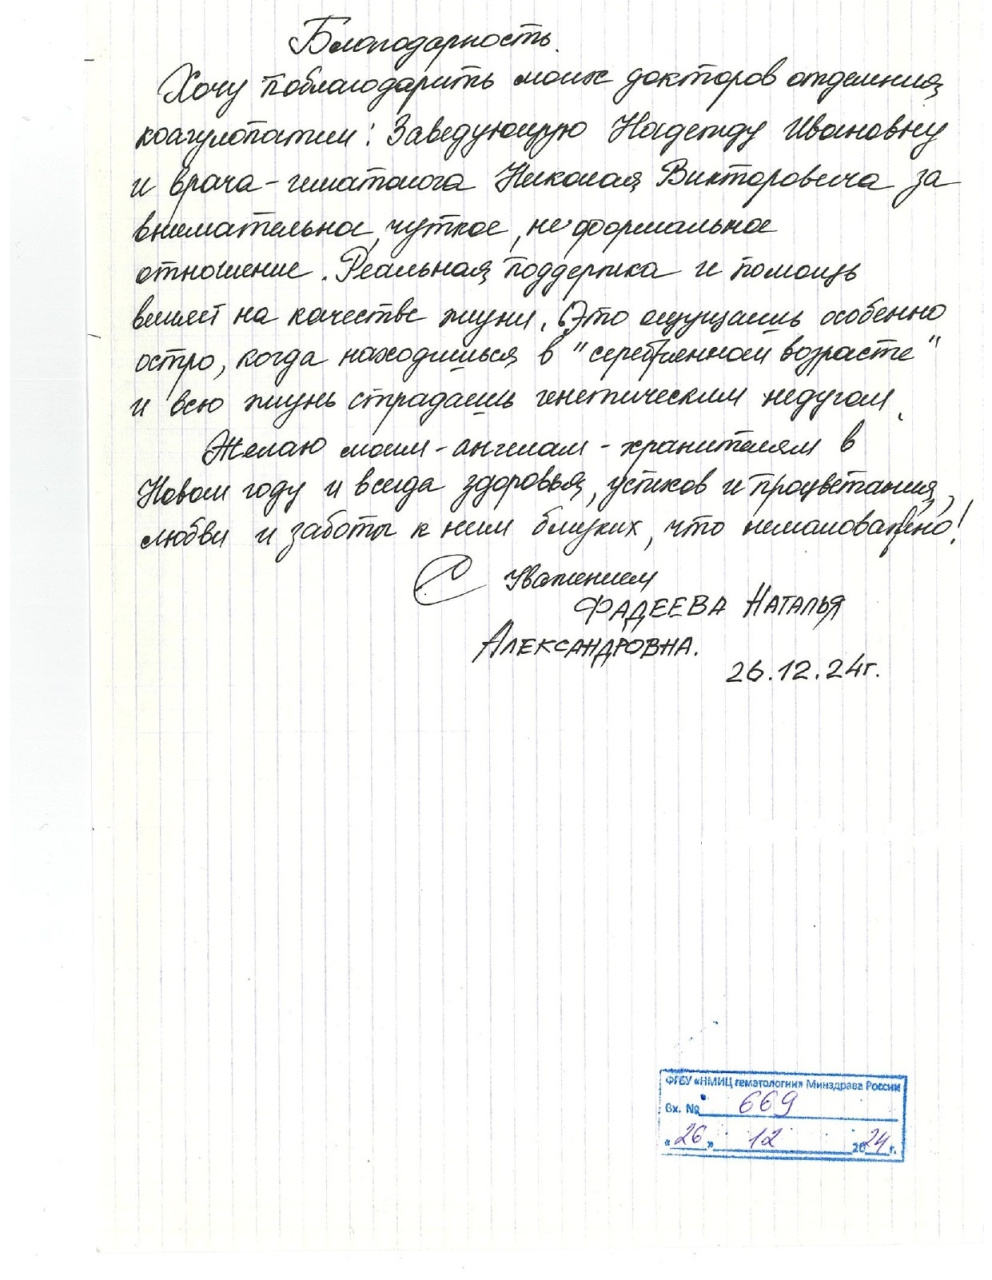 Благодарность.
Хочу поблагодарить моих докторов отделения
коагулопатии: Заведующую Надежду Ивановну
и врача-гематолога Николая Викторовича за
внимательное, чуткое, неформальное
отношение. Реальная поддержка и помощь
влияет на качестве жизни. Это ощущаешь особенно
остро, когда находишься в "серебренном возрасте"
и всю жизнь страдаешь генетическим недугом.
Желаю моим-ангелам-хранителям в
Новом году и всегда здоровья, успехов и процветания,
любви и заботы к ним близких, что немаловажно!
С уважением
ФАДЕЕВА НАТАЛЬЯ
АЛЕКСАНДРОВНА.
26.12.24г.
ФГБУ «НМИЦ гематологии» Минздрава России
Вх. № 669
«26» 12 2024 г.